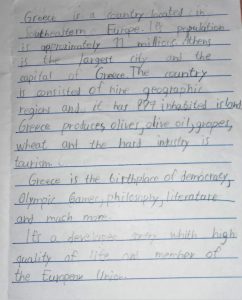 Greece is a country located in
southeastern Europe. Its population
is approximately 11 million. Athens
is the largest city and the
capital of Greece. The country
is consisted of nine geographic
regions and it has 879 inhabited island
Greece produces, olives, olive oil, grapes,
wheat and the hard industry is
tourism.
Greece is the birthplace of democracy,
Olympic Games, philosophy, literature
and much more.
It's a developed with high
quality of life and member of
the European Union.